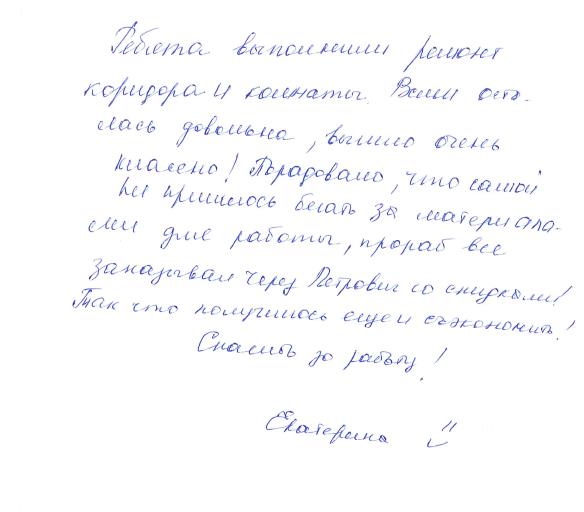 Ребята выполнили ремонт
коридора и комнаты. Всем оста-
лась довольна, вышло очень
классно! Порадовало, что самой
не пришлось бегать за материала-
ми для работы, прораб все
заказывал через Петрович со скидками!
Так что получилось еще и сэкономить!
Спасибо за работу!
Екатерина